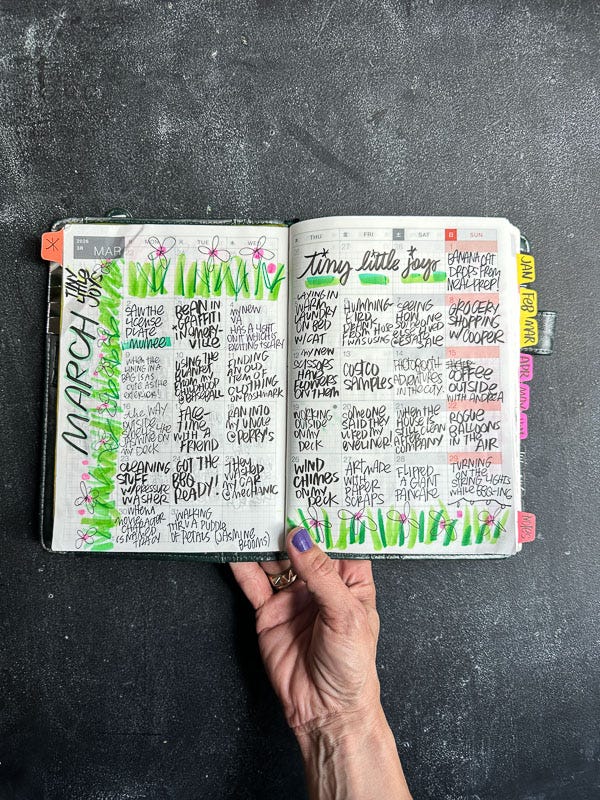 2026
3月
MAR
月 MON
火 TUE
水 WED
MARCH
TINY
little
JOYS
2
SAW the
LICENSE
PLATE
munee
3
BEAN IN
GRAFFITI
4
MY NEW
HAS A LIGHT
9
when the
LINING IN A
BAG IS AS
CUTE AS the
EXTERIOR!
10
USING the
PLANTER
FROM MY
11
FINDING
AN OLD
ITEM OF
CLOTHING
ON POSHMARK
the WAY
OUTSIDE
ON MY
DECK
FACE-
TIME
WITH A
FRIEND
RAN INTO
MY UNCLE
@PERRY'S
CLEANING
STUFF
W/PRESSURE
WASHER
GOT the
BBQ
READY!
they
WASHED
MY CAR
@MECHANIC
30
when A
31
WALKING
THRU A PUDDLE
OF PETALS (JASMINE
BLOOMS)
木 THU
金 FRI
土 SAT
日 SUN
tiny little joys
1
BANANA CAT
DROPS FROM
MEAL PREP!
LAYING IN
WARM
LAUNDRY
ON BED
W/CAT
HUMMING
BIRD
DRANK
FROM HOSE
I WAS USING
SEEING
HOW WE
8
GROCERY
SHOPPING
W/COOPER
12
MY NEW
SCISSORS
HAVE
FLOWERS
ON THEM
13
COSTCO
SAMPLES
14
PHOTOBOOTH
ADVENTURES
IN the CITY
15
COFFEE
OUTSIDE
WITH ANDREA
WORKING
OUTSIDE
ON MY
DECK
SOMEONE
SAID THEY
LIKED MY
EYELINER!
WHEN the
HOUSE IS
STILL CLEAN
AFTER
COMPANY
22
ROGUE
BALLOONS
IN the
AIR
26
WIND
CHIMES
ON MY
DECK
ART MADE
WITH
PAPER
SCRAPS
28
FLIPPED
A GIANT
PANCAKE
29
TURNING
ON the
STRING LIGHTS
WHILE BBQ-ING
JAN
FEB
MAR
APR